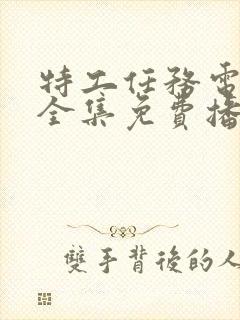 特工任務電
全集免費播
雙手背後的人